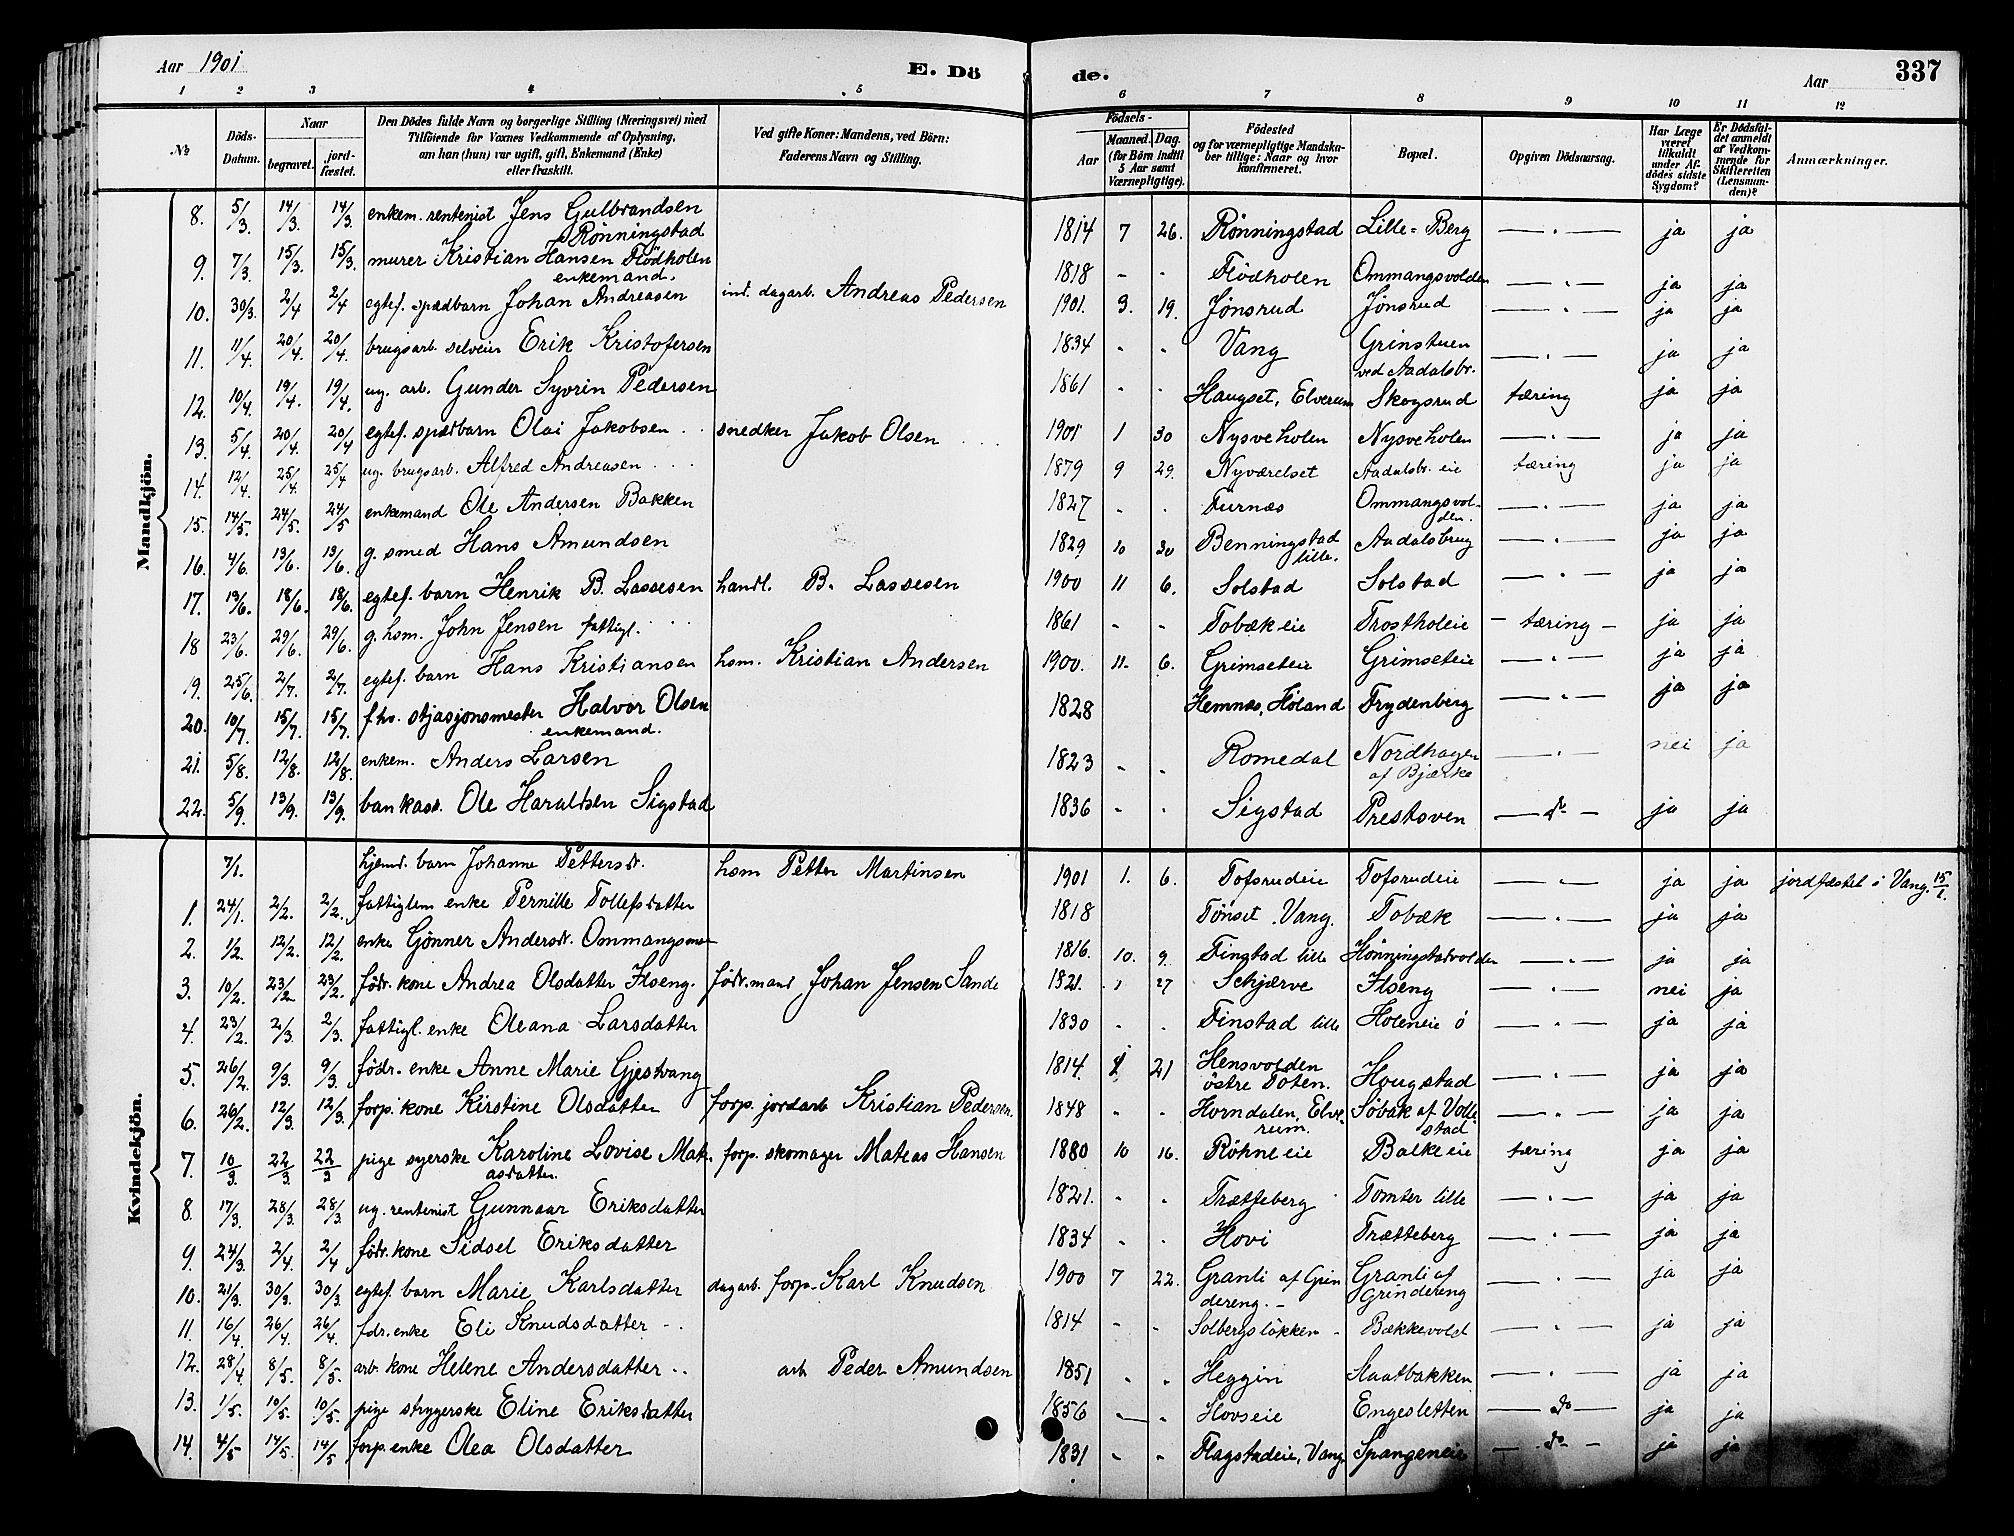 Aar 1901 E. Dö de. Aar 337
1 2 3 4 5 6 7 8 9 10 11 12
No
Döds-Datum.
Naar
begravet.
jord-fæstet.
Den Dödes fulde Navn og borgerlige Stilling (Næringsvei) med
Tilföiende for Voxnes Vedkommende af Oplysning,
om han (hun) var ugift, gift, Enkemand (Enke)
eller fraskilt.
Ved gifte Koner: Mandens, ved Börn:
Faderens Navn og Stilling.
Födsels-
Aar
Maaned. Dag.
(for Börn indtil
5 Aar samt
Værnepligtige).
Födested
og for værnepligtige Mandska-
ber tillige: Naar og hvor
konfirmeret.
Bopæl.
Opgiven Dödsaarsag.
Har Læge
været
tilkaldt
under Af-
dödes sidste
Sygdom?
Er Dödsfal-
det anmeldt
af Vedkom-
mende for
Skifteretten
(Lensman-
den)?
Anmærkninger.
Mandkjön.
8. 5/3. 14/3 14/3 enkem. rentenist Jens Gulbrandsen Rønningstad 1814 7 26. Rønningstad Lille-Berg —"— ja ja
9. 7/3. 15/3. 15/3. murer Kristian Hansen Flödholen enkemand. 1818 - - Flödholen Ommangsvolden —"— ja ja
10. 30/3. 2/4 2/4 egtef. spædbarn Johan Andreasen ind. dagarb. Andreas Pedersen 1901. 3. 19. Jønsrud Jønsrud —"— ja ja
11. 11/4 20/4. 20/4. brugsarb. selveier Erik Kristofersen 1834 " " Vang Grinstuen ved Aadalsbr. —"— ja ja
12. 10/4. 19/4. 19/4. ug. arb. Gunder Syvrin Pedersen 1861 " " Haugset, Elverum Skogsrud tæring ja ja
13. 5/4. 20/4. 20/4 egtef. spædbarn Olai Jakobsen snedker Jakob Olsen 1901 1 30 Nysveholen Nysveholen —"— ja ja
14. 12/4. 25/4. 25/4 ug. brugsarb. Alfred Andreasen 1879 9 29. Nyværelset Aadalsbr. eie tæring ja ja
15. 14/5. 24/5. 24/5 enkemand Ole Andersen Bakken 1827 " " Furnæs Ommangsvolden. —"— ja ja
16. 4/6. 13/6. 13/6. g. smed Hans Amundsen 1829 10 30 Benningstad lille. Aadalsbrug ja ja
17. 13/6. 18/6. 18/6. egtef. barn Henrik B. Lassesen handl. B. Lassesen 1900 11 6. Solstad Solstad —"— ja ja
18 23/6. 29/6. 29/6. g. hsm. John Jensen fattigl. 1861 - - Tobækeie Frostholeie - tæring - ja ja
19. 25/6. 2/7. 2/7. egtef. barn Hans Kristiansen hsm. Kristian Andersen 1900. 11. 6. Grimseteie Grimseteie —"— ja ja
20. 10/7. 15/7. 15/7. fhv. stjasjonsmester Halvor Olsen enkemand. 1828 Hemnæs, Høland Frydenberg —"— ja ja
21. 5/8. 12/8. 12/8. enkem. Anders Larsen 1823 " " Romedal Nordhagen af Bjærke —"— nei ja
22. 5/9. 13/9. 13/9. bankass. Ole Haraldsen Sigstad 1836 " " Sigstad Prestoven —do— ja ja
Kvindekjön.
7/1. hjemd. barn Johanne Pettersdr. hsm Petter Martinsen 1901 1. 6. Tofsrudeie Tofsrudeie —"— ja ja jordfæstet i Vang. 15/1.
1. 24/1. 2/2. 2/2. fattiglem enke Pernille Tollefsdatter 1818 Tønset. Vang. Tobæk —"— ja ja
2. 1/2. 12/2. 12/2. enke Gønner Andersdr. Ommangsmoen 1816. 10. 9. Finstad lille Hønningstadvolden —"— ja ja
3. 10/2. 23/2 23/2. födr. kone Andrea Olsdatter Ilseng. födr. mand Johan Jensen Sande 1821. 1 27 Schjærve Ilseng —"— nei ja
4. 23/2. 2/3. 2/3. fattigl. enke Oleana Larsdatter 1830 " " Finstad lille Holeneie ö —"— ja ja
5. 26/2. 9/3. 9/3. födr. enke Anne Marie Gjestvang 1814. 21 Hensvolden östre Toten. Hougstad —"— ja ja
6. 26/2. 12/3. 12/3. forp. kone Kirstine Olsdatter forp. jordarb Kristian Pedersen. 1848 " " Horndalen, Elverum. Söbak af Vollstad —"— ja ja
7. 10/3. 22/3 22/3 pige syerske Karoline Lovise Matiasdatter. forp. skomager Mateas Hansen 1880 10 16. Røhneeie Balkeeie tæring ja ja
8. 17/3. 28/3. 28/3. ug. rentenist Gunnaar Eriksdatter 1821. " " Trætteberg Tomter lille —"— ja ja
9. 24/3. 2/4. 2/4 födr. kone Sidsel Eriksdatter 1834 " " Hovi Trætteberg —"— ja ja
10. 21/3. 30/3. 30/3. egtef. barn Marie Karlsdatter dagarb. forp. Karl Knudsen 1900 7 22. Granli af Grindereng.- Granli af Grindereng —"— ja ja
11. 16/4. 26/4. 26/4. fdr. enke Eli Knudsdatter 1814 " " Solbergslökken - Bækkevold —"— ja ja
12. 28/4 8/5. 8/5. arb. kone Helene Andersdatter arb Peder Amundsen 1851 " " Heggin Staatbakken —"— ja ja
13. 1/5. 10/5. 10/5. pige strygerske Eline Eriksdatter 1856 " " Hovseie Engesletten —do— ja ja
14. 4/5 14/5. 14/5 forp. enke Olea Olsdatter 1831 " " Flagstadeie, Vang Spangeneie —do— ja ja